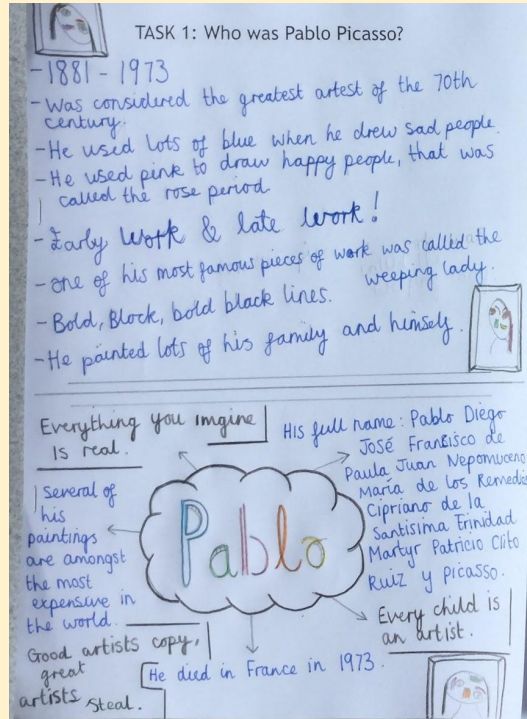 TASK 1: Who was Pablo Picasso?
- 1881 - 1973
- Was considered the greatest artest of the 70th
century.
- He used lots of blue when he drew sad people.
- He used pink to draw happy people, that was
called the rose period
- Early work & late work!
- one of his most famous pieces of work was called the
weeping lady.
- Bold, Block, bold black lines.
- He painted lots of his family and himself.
Everything you imgine
is real.
His full name: Pablo Diego
José Francisco de
Paula Juan Nepomuceno
María de los Remedios
Cipriano de la
Santisima Trinidad
Martyr Patricio Clito
Ruiz y Picasso.
Several of
his
paintings
are amongst
the most
expensive in
the world.
Pablo
Every child is
an artist.
Good artists copy,
great
artists steal.
He died in France in 1973.